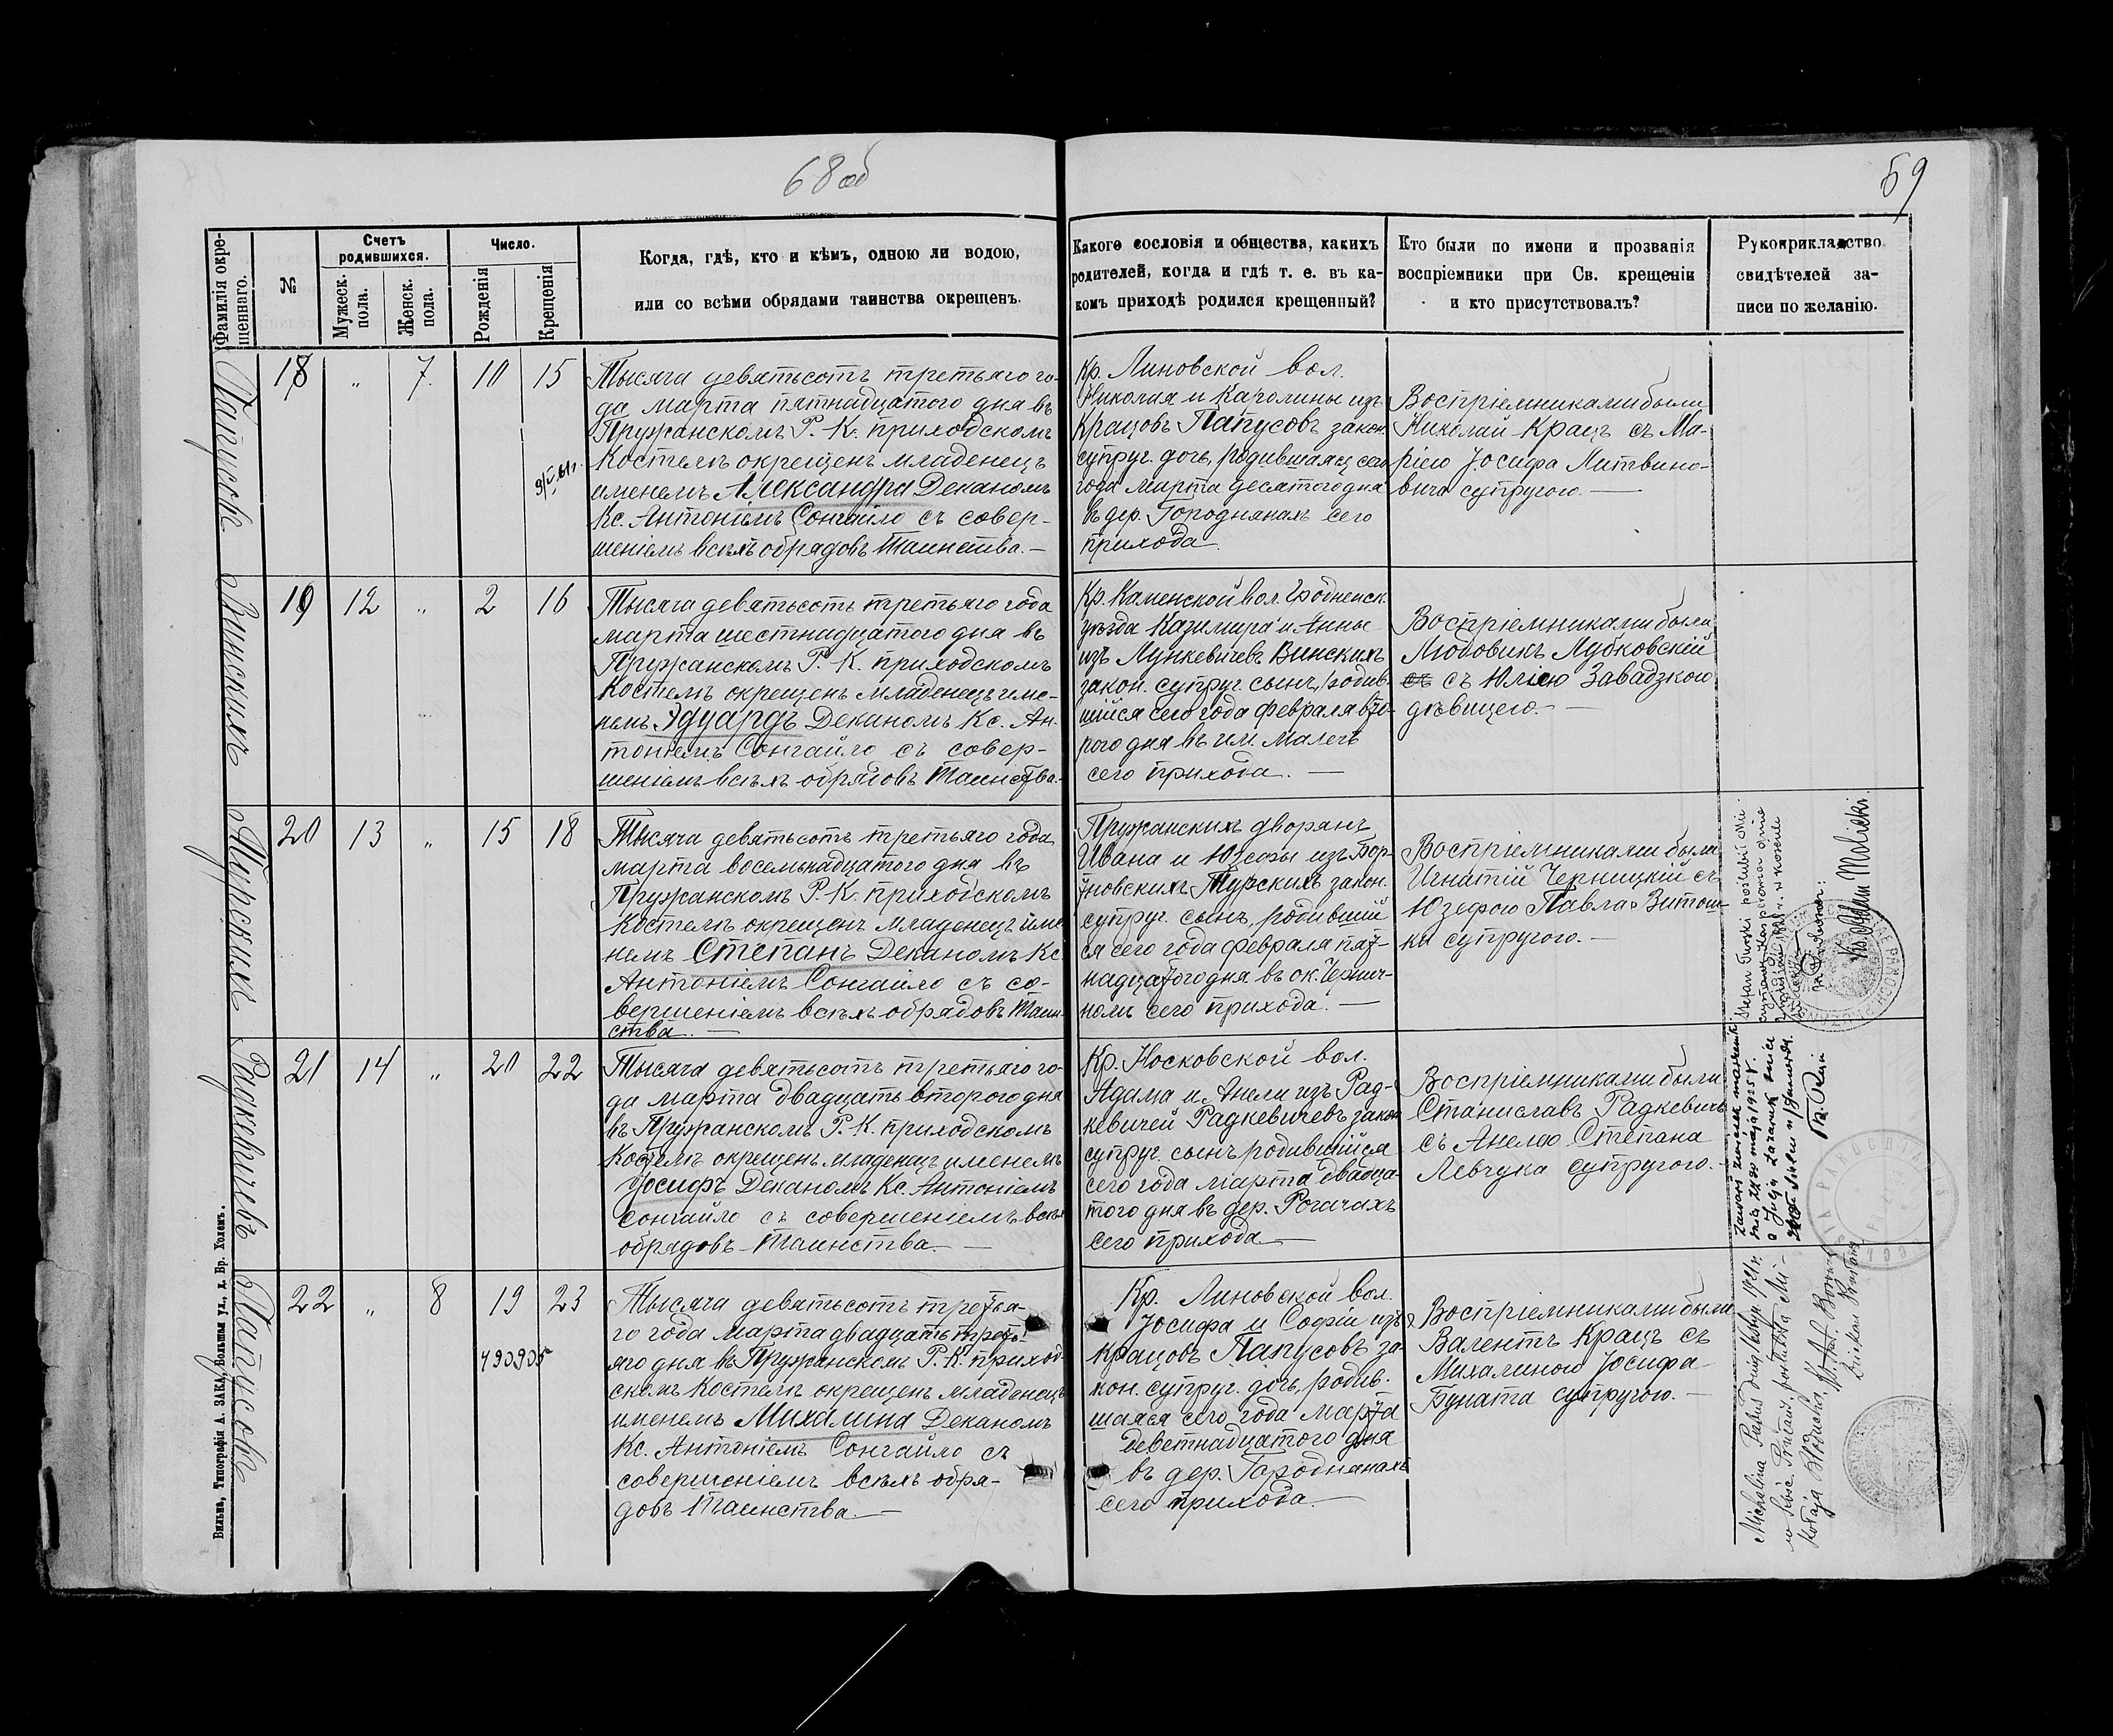 68 об
69
Фамилія окре-
щеннаго.
№
Счетъ
родившихся.
Мужеск.
пола.
Женск.
пола.
Число.
Рожденія
Крещенія
Когда, гдѣ, кто и кѣмъ, одною ли водою,
или со всѣми обрядами таинства окрещенъ.
Какого сословія и общества, какихъ
родителей, когда и гдѣ т. е. въ ка-
комъ приходѣ родился крещенный?
Кто были по имени и прозванія
воспріемники при Св. крещеніи
и кто присутствовалъ?
Рукоприкладство
свидѣтелей за-
писи по желанію.
Папусовъ
18
„
7.
10
15
Тысяча девятьсотъ третьяго го-
да марта пятнадцатого дня въ
Пружанскомъ Р. К. приходскомъ
Костелѣ окрещенъ младенецъ
именемъ Александра Деканомъ
Кс. Антоніемъ Сонгайло съ совер-
шеніемъ всѣхъ обрядовъ Таинства.—
Кр. Линовской вол.
Николая и Каролины изъ
Крацовъ Папусовъ закон.
супруг. дочь, родившаяся сего
года марта десятого дня
въ дер. Городнянахъ сего
прихода.
Воспріемниками были
Николай Крацъ съ Ма-
ріею Іосифа Литвино-
вича супругою.—
Винскихъ
19
12
„
2
16
Тысяча девятьсотъ третьяго года
марта шестнадцатого дня въ
Пружанскомъ Р. К. приходскомъ
Костелѣ окрещенъ младенецъ име-
немъ Эдуардъ Деканомъ Кс. Ан-
тоніемъ Сонгайло съ совер-
шеніемъ всѣхъ обрядовъ Таинства.
Кр. Каменской вол. Гродненск.
уѣзда Казимира и Анны
изъ Лункевичевъ Винскихъ
закон. супруг. сынъ, родив-
шійся сего года февраля вто-
рого дня въ им. Малечъ
сего прихода.—
Воспріемниками были
Людовикъ Лубковскій
съ съ Юліею Завадзкою
дѣвицею.—
Турскихъ
20
13
„
15
18
Тысяча девятьсотъ третьяго года
марта восемьнадцатого дня въ
Пружанскомъ Р. К. приходскомъ
Костелѣ окрещенъ младенецъ име
немъ Степанъ Деканомъ Кс
Антоніемъ Сонгайло съ со-
вершеніемъ всѣхъ обрядовъ Таин
ства.—
Пружанскихъ дворянъ
Ивана и Юзефы изъ Бор-
тновскихъ Турскихъ закон.
супруг. сынъ, родивший
ся сего года февраля пят-
надцатого дня въ ок. Чернич-
номъ сего прихода.—
Воспріемниками были
Игнатій Черницкій съ
Юзефою Павла Витош-
ки супругою.—
Stefan Turski poślubił
Ks. Adam Malicki.
Радкевичевъ
21
14
„
20
22
Тысяча девятьсотъ третьяго го-
да марта двадцать второго дня
въ Пружанскомъ Р. К. приходскомъ
Костелѣ окрещенъ младенецъ именемъ
Іосифъ Деканомъ Кс. Антоніемъ
Сонгайло съ совершеніемъ всѣхъ
обрядовъ Таинства.—
Кр. Носковской вол.
Адама и Анели изъ Рад-
кевичей Радкевичевъ закон
супруг. сынъ родившійся
сего года марта двадца-
того дня въ дер. Рогачахъ
сего прихода.—
Воспріемниками были
Станиславъ Радкевичъ
съ Анелею Степана
Левчука супругою.—
Zawarł związek małżeński
dnia
Папусовъ
22
„
8
19
23
490905
Тысяча девятьсотъ третья-
го года марта двадцать треть-
яго дня въ Пружанскомъ Р. К. приход
скомъ Костелѣ окрещенъ младенецъ
именемъ Михалина Деканомъ
Кс. Антоніемъ Сонгайло съ
совершеніемъ всѣхъ обря-
довъ Таинства.—
Кр. Линовской вол.
Іосифа и Софіи изъ
Крацовъ Папусовъ за-
кон. супруг. дочь, родив.
шаяся сего года марта
деветнадцатого дня
въ дер. Городнянахъ
сего прихода.—
Воспріемниками были
Валентъ Крацъ съ
Михалиною Іосифа
Буната супругою.—
Michalina Papus dnia
Dziekan Prużany
Вильна, Типографія А. ЗАКА, Большая ул., д. Бр. Холемъ.